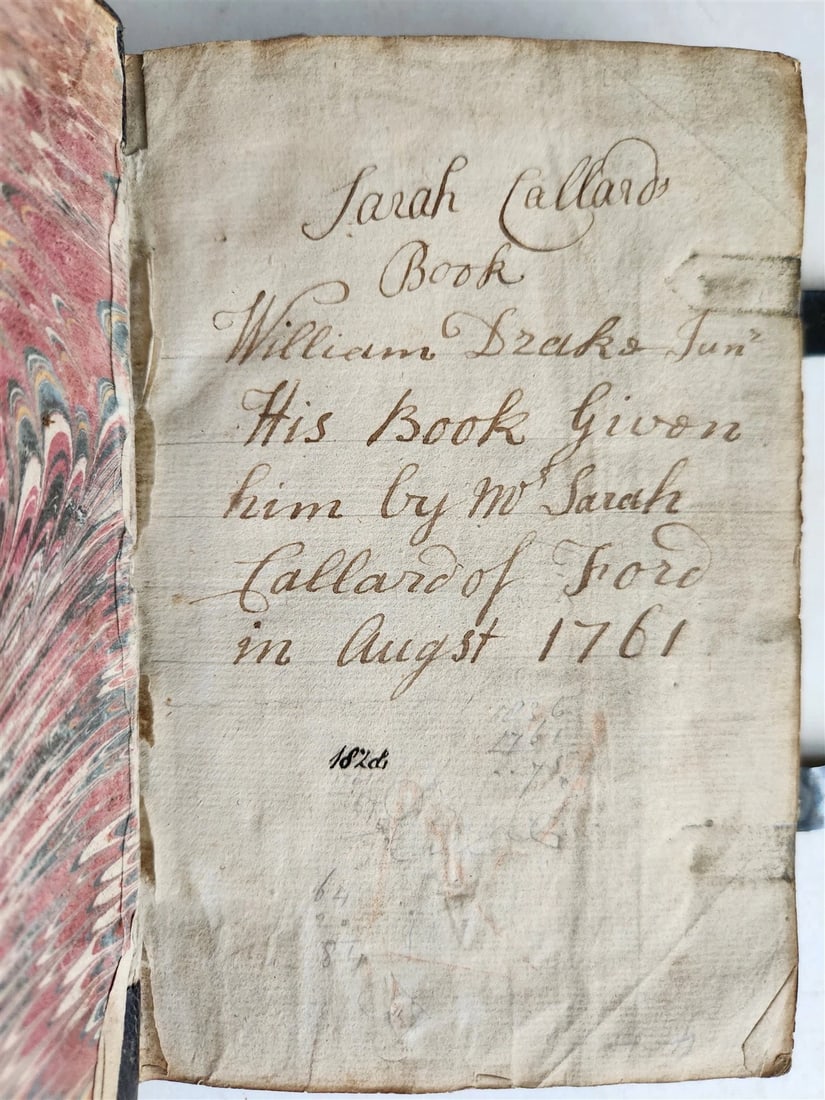 Sarah Callards
Book
William Drake Junr
His Book Given
him by Mrs Sarah
Callard of Ford
in Augst 1761
64
84